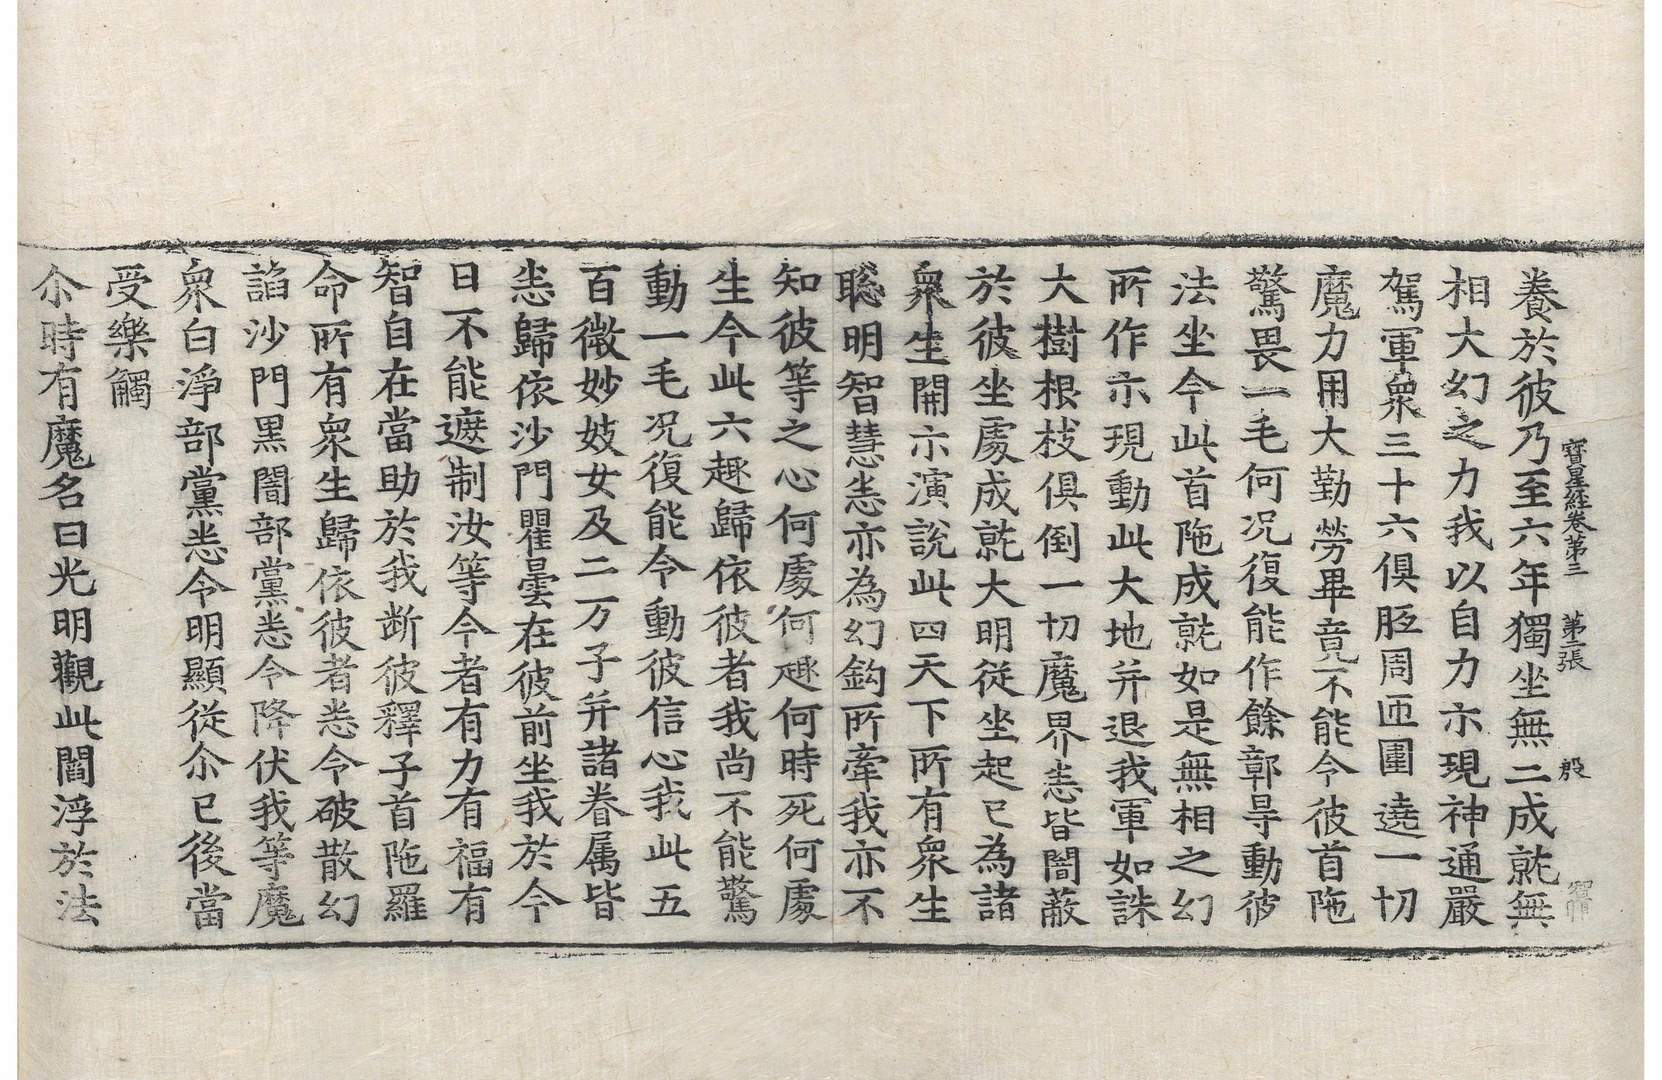 寶星經卷第三 第二張 殷
養於彼乃至六年獨坐無二成就無
相大幻之力我以自力示現神通嚴
駕軍衆三十六俱胝周迊圍遶一切
魔力用大勤勞畢竟不能令彼首陁
驚畏一毛何況復能作餘鄣㝵動彼
法坐今此首陁成就如是無相之幻
所作示現動此大地并退我軍如誅
大樹根栽俱倒一切魔界悉皆闇蔽
於彼坐處成就大明從坐起已為諸
衆生開示演說此四天下所有衆生
聡明智慧悉亦為幻鈎所牽我亦不
知彼等之心何處何趣何時死何處
生今此六趣歸依彼者我尚不能驚
動一毛況復能令動彼信心我此五
百微妙妓女及二万子并諸眷属皆
悉歸依沙門瞿曇在彼前坐我於今
日不能遮制汝等今者有力有福有
智自在當助於我断彼釋子首陁羅
命所有衆生歸依彼者悉令破散幻
諂沙門黒闇部黨悉令降伏我等魔
衆白淨部黨悉令明顯從尒已後當
受樂觸
尒時有魔名曰光明觀此閻浮於法